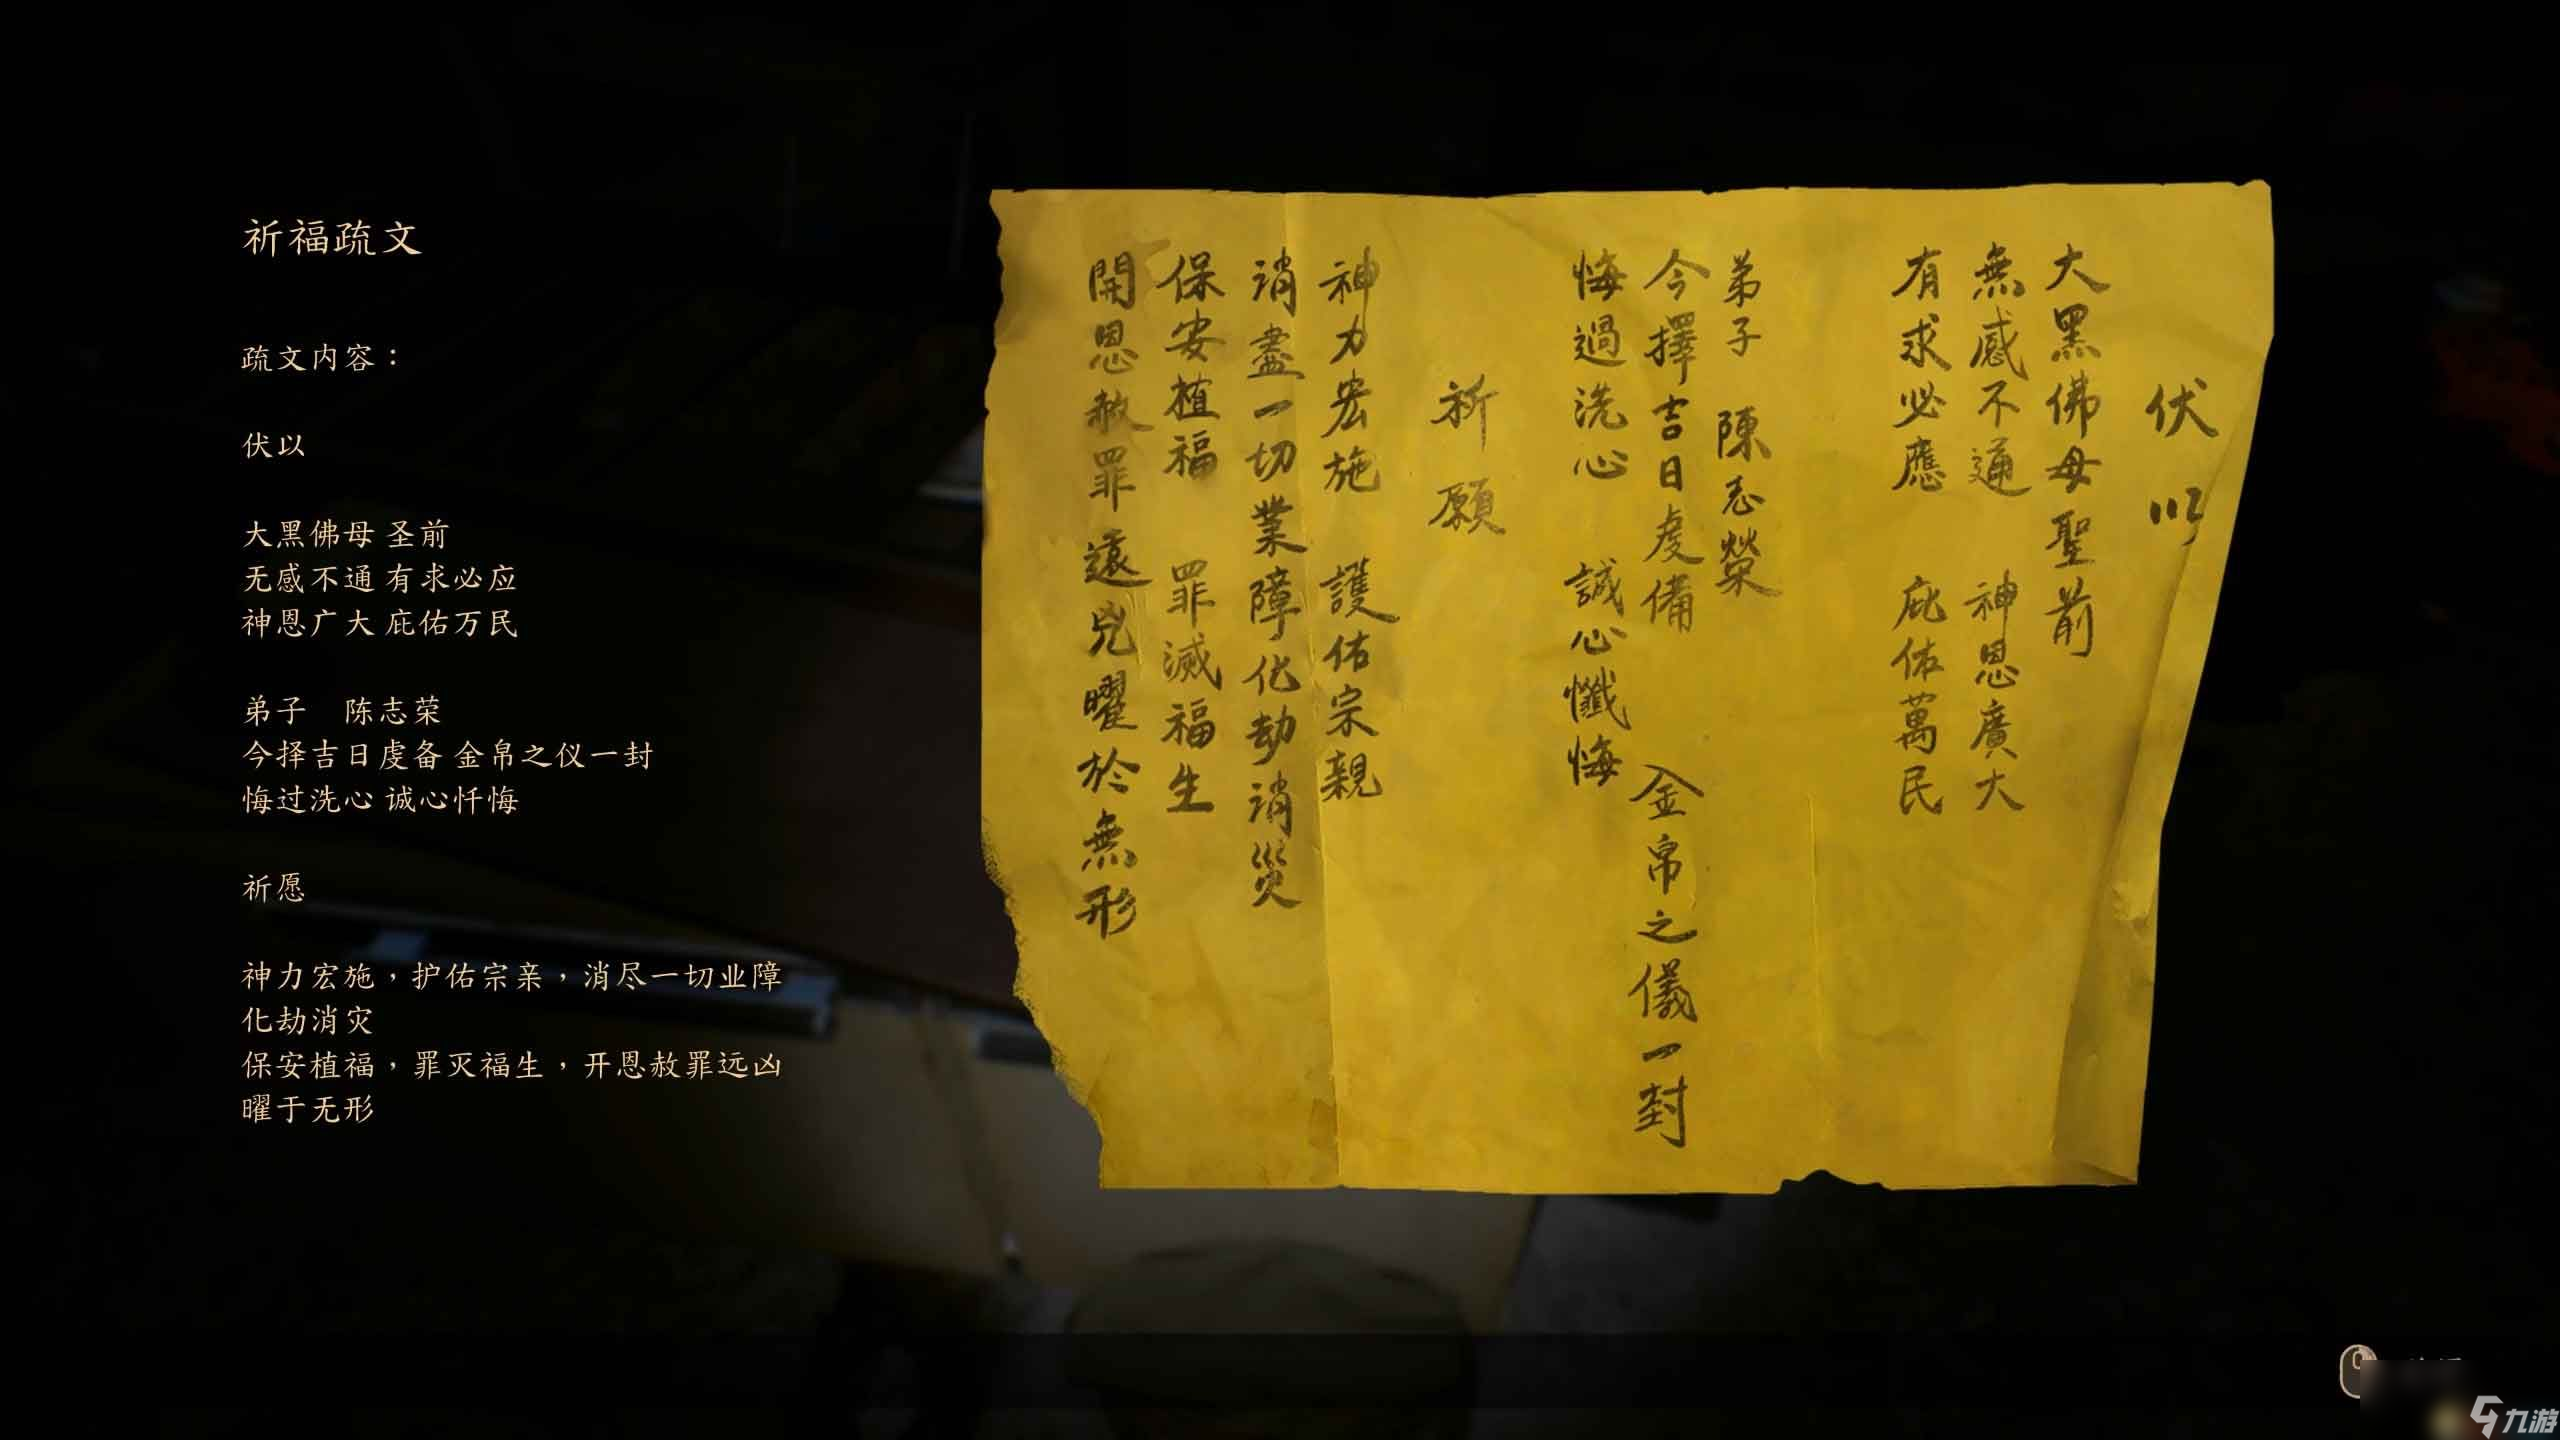 祈福疏文
疏文内容：
伏以
大黑佛母 圣前
无感不通 有求必应
神恩广大 庇佑万民
弟子　陈志荣
今择吉日虔备 金帛之仪一封
悔过洗心 诚心忏悔
祈愿
神力宏施，护佑宗亲，消尽一切业障
化劫消灾
保安植福，罪灭福生，开恩赦罪远凶
曜于无形
伏以
大黑佛母聖前
無感不通　神恩廣大
有求必應　庇佑萬民
弟子　陳志榮
今擇吉日虔備　金帛之儀一封
悔過洗心　誠心懺悔
祈願
神力宏施　護佑宗親
消盡一切業障化劫消災
保安植福　罪滅福生
開恩赦罪遠兇曜於無形
九游